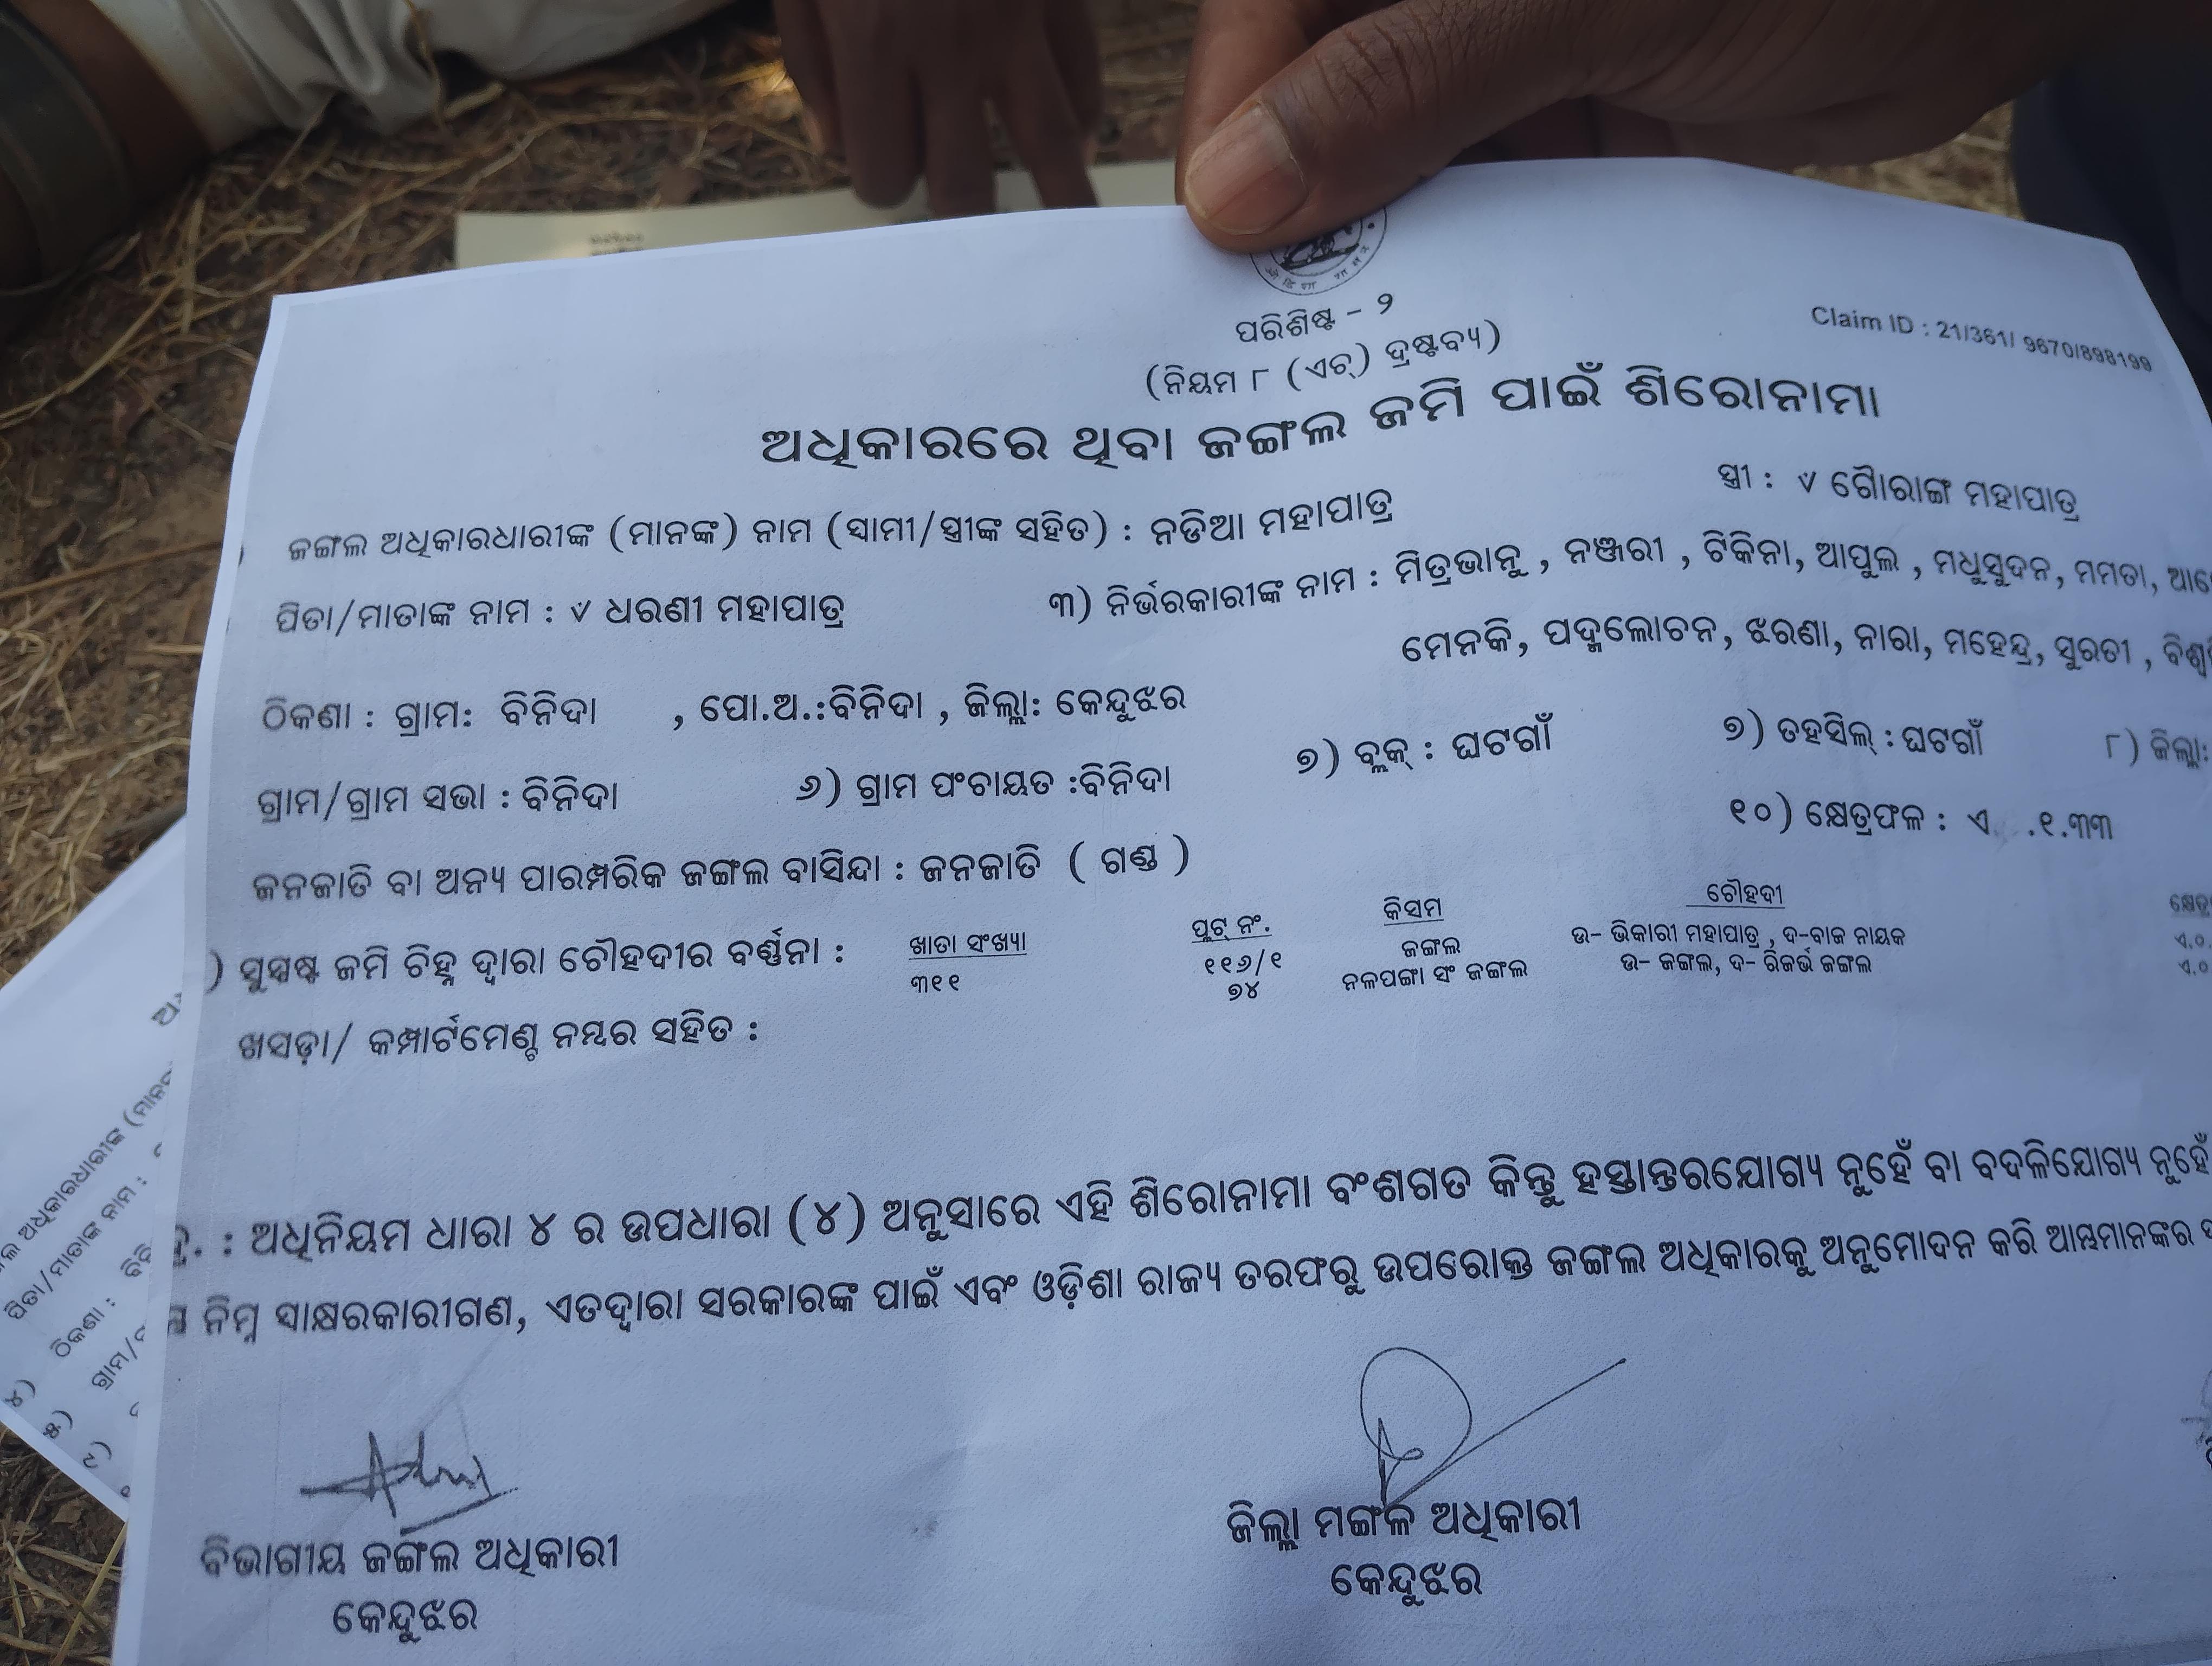 ପରିଶିଷ୍ଟ - ୨
Claim ID : 21/361/ 9670/898199
(ନିୟମ ୮ (ଏଚ୍) ଦ୍ରଷ୍ଟବ୍ୟ)
ଅଧିକାରରେ ଥିବା ଜଙ୍ଗଲ ଜମି ପାଇଁ ଶିରୋନାମା
ଜଙ୍ଗଲ ଅଧିକାରଧାରୀଙ୍କ (ମାନଙ୍କ) ନାମ (ସ୍ୱାମୀ/ସ୍ତ୍ରୀଙ୍କ ସହିତ) : ନଡିଆ ମହାପାତ୍ର ସ୍ତ୍ରୀ : ୰ ଗୌରାଙ୍ଗ ମହାପାତ୍ର
ପିତା/ମାତାଙ୍କ ନାମ : ୰ ଧରଣୀ ମହାପାତ୍ର ୩) ନିର୍ଭରକାରୀଙ୍କ ନାମ : ମିତ୍ରଭାନୁ , ନଞ୍ଜରୀ , ଟିକିନା, ଆପୁଲ , ମଧୁସୁଦନ, ମମତା,
ମେନକି, ପଦ୍ମଲୋଚନ, ଝରଣା, ନାରା, ମହେନ୍ଦ୍ର, ସୁରତୀ ,
ଠିକଣା : ଗ୍ରାମ: ବିନିଦା , ପୋ.ଅ.:ବିନିଦା , ଜିଲ୍ଲା: କେନ୍ଦୁଝର
ଗ୍ରାମ/ଗ୍ରାମ ସଭା : ବିନିଦା ୬) ଗ୍ରାମ ପଂଚାୟତ :ବିନିଦା ୭) ବ୍ଲକ୍ : ଘଟଗାଁ ୭) ତହସିଲ୍ : ଘଟଗାଁ ୮) ଜିଲ୍ଲା:
ଜନଜାତି ବା ଅନ୍ୟ ପାରମ୍ପରିକ ଜଙ୍ଗଲ ବାସିନ୍ଦା : ଜନଜାତି ( ଗଣ୍ଡ ) ୧୦) କ୍ଷେତ୍ରଫଳ : ଏ .୧.୩୩
) ସୁସ୍ପଷ୍ଟ ଜମି ଚିହ୍ନ ଦ୍ୱାରା ଚୌହଦୀର ବର୍ଣ୍ଣନା : ଖାତା ସଂଖ୍ୟା ପ୍ଲଟ୍ ନଂ. କିସମ ଚୌହଦୀ
୩୧୧ ୧୧୬/୧ ଜଙ୍ଗଲ ଉ- ଭିକାରୀ ମହାପାତ୍ର , ଦ-ବାଜ ନାୟକ
୭୪ ନଳପଙ୍ଗା ସଂ ଜଙ୍ଗଲ ଉ- ଜଙ୍ଗଲ, ଦ- ରିଜର୍ଭ ଜଙ୍ଗଲ
ଖସଡ଼ା/ କମ୍ପାର୍ଟମେଣ୍ଟ ନମ୍ବର ସହିତ :
: ଅଧିନିୟମ ଧାରା ୪ ର ଉପଧାରା (୪) ଅନୁସାରେ ଏହି ଶିରୋନାମା ବଂଶଗତ କିନ୍ତୁ ହସ୍ତାନ୍ତରଯୋଗ୍ୟ ନୁହେଁ ବା ବଦଳିଯୋଗ୍ୟ ନୁହେଁ
ନିମ୍ନ ସାକ୍ଷରକାରୀଗଣ, ଏତଦ୍ୱାରା ସରକାରଙ୍କ ପାଇଁ ଏବଂ ଓଡ଼ିଶା ରାଜ୍ୟ ତରଫରୁ ଉପରୋକ୍ତ ଜଙ୍ଗଲ ଅଧିକାରକୁ ଅନୁମୋଦନ କରି ଆମ୍ଭମାନଙ୍କର
ବିଭାଗୀୟ ଜଙ୍ଗଲ ଅଧିକାରୀ
କେନ୍ଦୁଝର
ଜିଲ୍ଲା ମଙ୍ଗଳ ଅଧିକାରୀ
କେନ୍ଦୁଝର